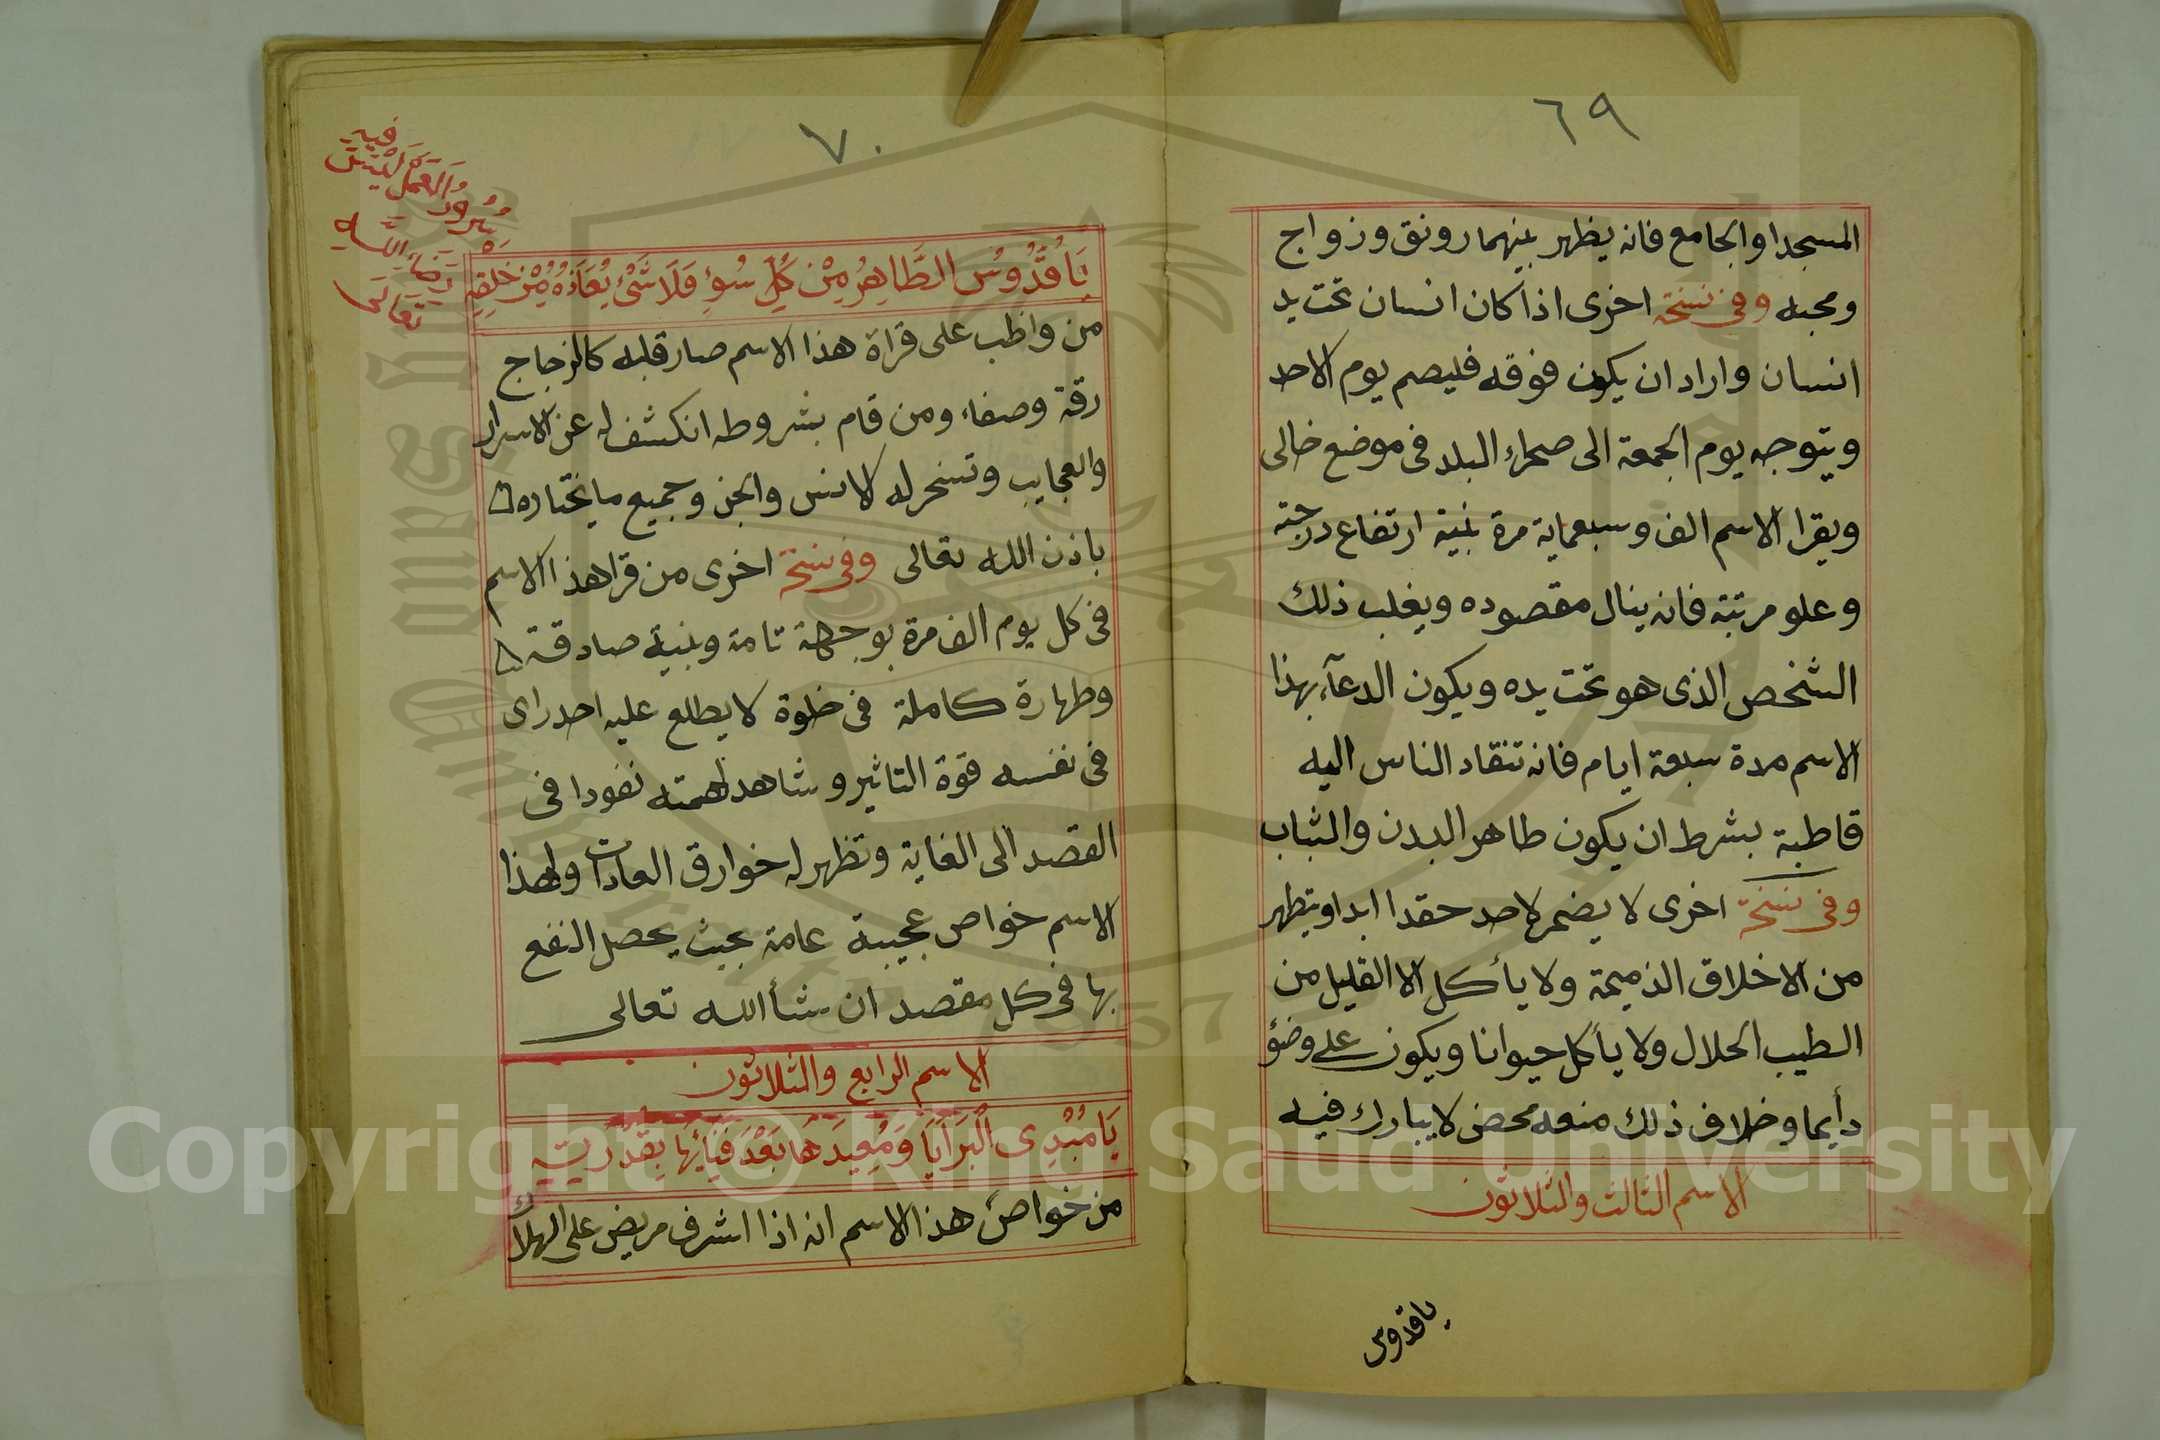 ٦٩
المسجد او الجامع فانه يظهر بينهما رونق وزواج
ومحبه وفى نسخة اخرى اذا كان انسان تحت يد
انسان واراد ان يكون فوقه فليصم يوم الاحد
ويتوجه يوم الجمعة الى صحراء البلد فى موضع خالى
ويقرا الاسم الف وسبعماية مرة بنية ارتفاع درجته
وعلو مرتبته فانه ينال مقصوده ويغلب ذلك
الشخص الذى هو تحت يده ويكون الدعآء بهذا
الاسم مدة سبعة ايام فانه تنقاد الناس اليه
قاطبة بشرط ان يكون طاهر البدن والثياب
وفى نسخة اخرى لا يضمر لاحد حقدا ابدا ويتطهر
من الاخلاق الذميمة ولا يأكل الا القليل من
الطيب الحلال ولا يأكل حيوانا ويكون على وضؤ
دأيما وخلاف ذلك منعه محض لا يبارك فيه
الاسم الثالث والثلاثون
ياقدوس
٧٠
فيه
والعمل ليتيش
تعالى
يَا قُدُّوسُ الطَّاهِرُ مِنْ كُلِّ سُوءٍ فَلَا شَىْءَ يُعَازُهُ مِنْ خَلْقِهِ
من واظب على قراة هذا الاسم صار قلبه كالزجاج
رقة وصفاء ومن قام بشروطه انكشف له عن الاسرار
والعجايب وتسخر له الانس والجن وجميع ما يختاره
باذن الله تعالى وفى نسخة اخرى من قرا هذا الاسم
فى كل يوم الف مرة بوجهة تامة وبنية صادقة
وطهارة كاملة فى خلوة لا يطلع عليه احد راى
فى نفسه قوة التاثير وشاهد لهمته نفودا فى
القصد الى الغاية وتظهر له خوارق العادات ولهذا
الاسم خواص عجيبة عامة بحيث يحصل النفع
بها فى كل مقصد ان شأ الله تعالى
الاسم الرابع والثلاثون
يَا مُبْدِى الْبَرَايَا وَمُعِيدَهَا بَعْدَ فَنَائِهَا بِقُدْرَتِهِ
من خواص هذا الاسم انه اذا اشرف مريض على الهلاك
Copyright © King Saud University
1957